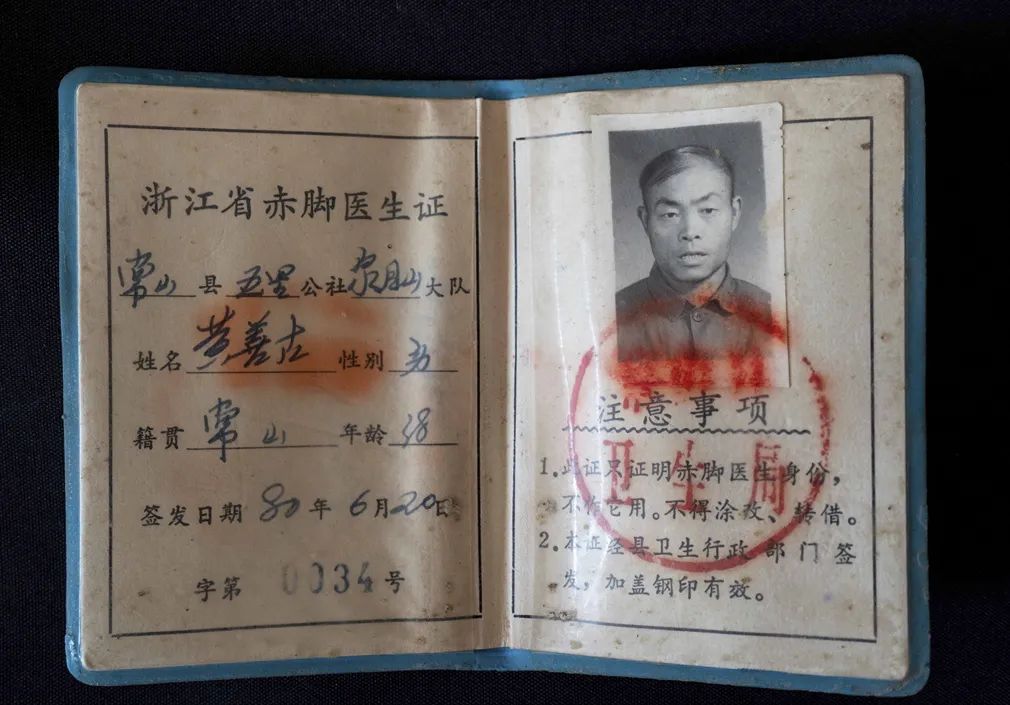 浙江省赤脚医生证
常山县五里公社泉目山大队
姓名黄善古性别男
籍贯常山年龄38
签发日期80年6月20日
字第0034号
注意事项
卫生局
1.此证只证明赤脚医生身份,
不作它用。不得涂改、转借。
2.本证经县卫生行政部门签
发,加盖钢印有效。